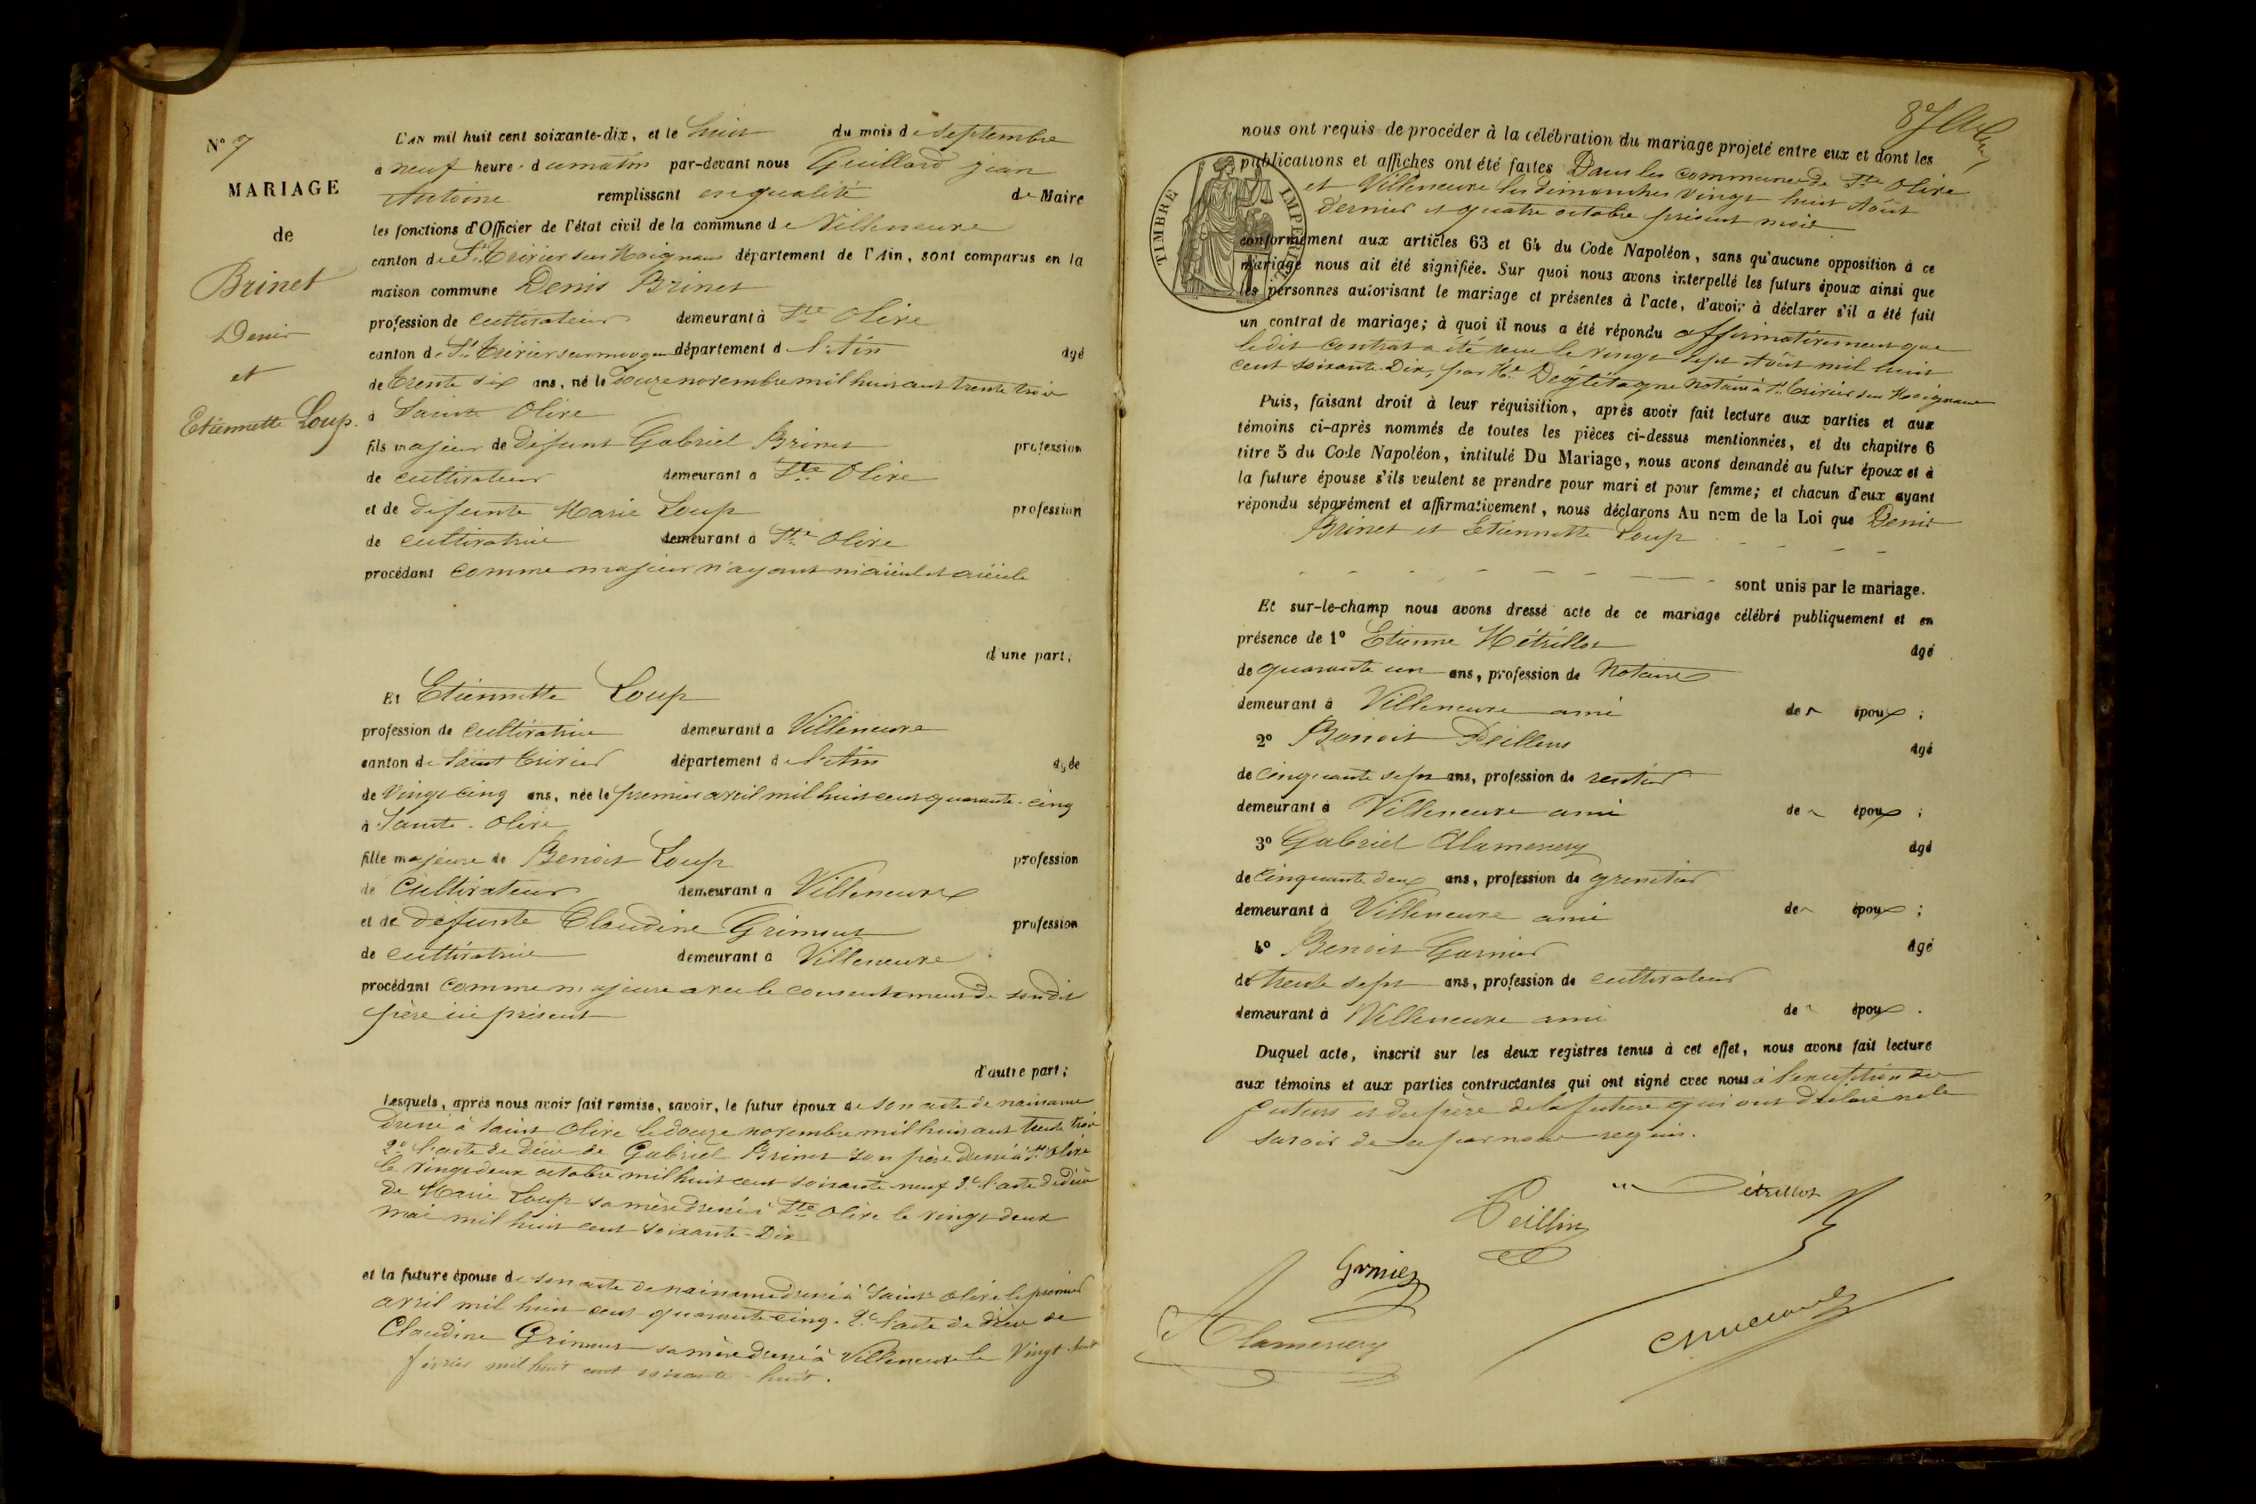 N° 7
MARIAGE
de
Brinet
Denis
et
Etiennette Loup.
L'AN mil huit cent soixante-dix, et le huit du mois de Septembre
à neuf heure du matin par-devant nous Guillard Jean
Antoine remplissant en qualité de Maire
les fonctions d'Officier de l'état civil de la commune de Villeneuve
canton de St. Trivier sur Moignans département de l'Ain, sont comparus en la
maison commune Denis Brinet
profession de cultivateur demeurant à Ste Olive
canton de St. Trivier sur moignans département de l'Ain âgé
de trente six ans, né le douze novembre mil huit cent trente trois
à Sainte Olive
fils majeur de défunt Gabriel Brinet profession
de cultivateur demeurant à Ste Olive
et de défunte Marie Loup profession
de cultivatrice demeurant à Ste Olive
procédant comme majeur n'ayant ni aïeul et aïeule
d'une part;
Et Etiennette Loup
profession de cultivatrice demeurant à Villeneuve
canton de Saint Trivier département de l'Ain âgée
de vingt cinq ans, née le premier avril mil huit cent quarante-cinq
à Sainte-Olive
fille majeure de Benoit Loup profession
de cultivateur demeurant à Villeneuve
et de défunte Claudine Grimout profession
de cultivatrice demeurant à Villeneuve
procédant comme majeure avec le consentement de son dit
père ici présent
d'autre part;
Lesquels, après nous avoir fait remise, savoir, le futur époux de son acte de naissance
dressé à Saint Olive le douze novembre mil huit cent trente trois
2° l'acte de décès de Gabriel Brinet son père dressé à Ste Olive
le vingt deux octobre mil huit cent soixante neuf 3° l'acte de décès
de Marie Loup sa mère dressé à Ste Olive le vingt deux
mai mil huit cent soixante-Dix
et la future épouse de son acte de naissance dressé à Sainte Olive le premier
avril mil huit cent quarante cinq. 2° l'acte de décès de
Claudine Grimout sa mère dressé à Villeneuve le Vingt huit
février mil huit cent soixante-huit.
nous ont requis de procéder à la célébration du mariage projeté entre eux et dont les
publications et affiches ont été faites Dans les communes de Ste Olive
et Villeneuve les dimanches vingt huit Août
dernier et quatre octobre présent mois
TIMBRE IMPERIAL
conformément aux articles 63 et 64 du Code Napoléon, sans qu'aucune opposition à ce
mariage nous ait été signifiée. Sur quoi nous avons interpellé les futurs époux ainsi que
les personnes autorisant le mariage et présentes à l'acte, d'avoir à déclarer s'il a été fait
un contrat de mariage; à quoi il nous a été répondu affirmativement que
le dit contrat a été reçu le vingt sept Août mil huit
cent soixante-Dix, par Me notaire à St. Trivier sur Moignans
Puis, faisant droit à leur réquisition, après avoir fait lecture aux parties et aux
témoins ci-après nommés de toutes les pièces ci-dessus mentionnées, et du chapitre 6
titre 5 du Code Napoléon, intitulé Du Mariage, nous avons demandé au futur époux et à
la future épouse s'ils veulent se prendre pour mari et pour femme; et chacun d'eux ayant
répondu séparément et affirmativement, nous déclarons Au nom de la Loi que Denis
Brinet et Etiennette Loup
sont unis par le mariage.
Et sur-le-champ nous avons dressé acte de ce mariage célébré publiquement et en
présence de 1° Etienne Métrillot âgé
de quarante un ans, profession de Notaire
demeurant à Villeneuve ami des époux;
2° Benoit Peilleux âgé
de cinquante sept ans, profession de rentier
demeurant à Villeneuve ami des époux;
3° Gabriel Alamercery âgé
de cinquante deux ans, profession de
demeurant à Villeneuve ami des époux;
4° Benoit Garnier âgé
de trente sept ans, profession de cultivateur
demeurant à Villeneuve ami des époux.
Duquel acte, inscrit sur les deux registres tenus à cet effet, nous avons fait lecture
aux témoins et aux parties contractantes qui ont signé avec nous à l'exception des
futurs et du père de la future qui ont déclaré ne le
savoir de ce par nous requis.
Garnier
Alamercery